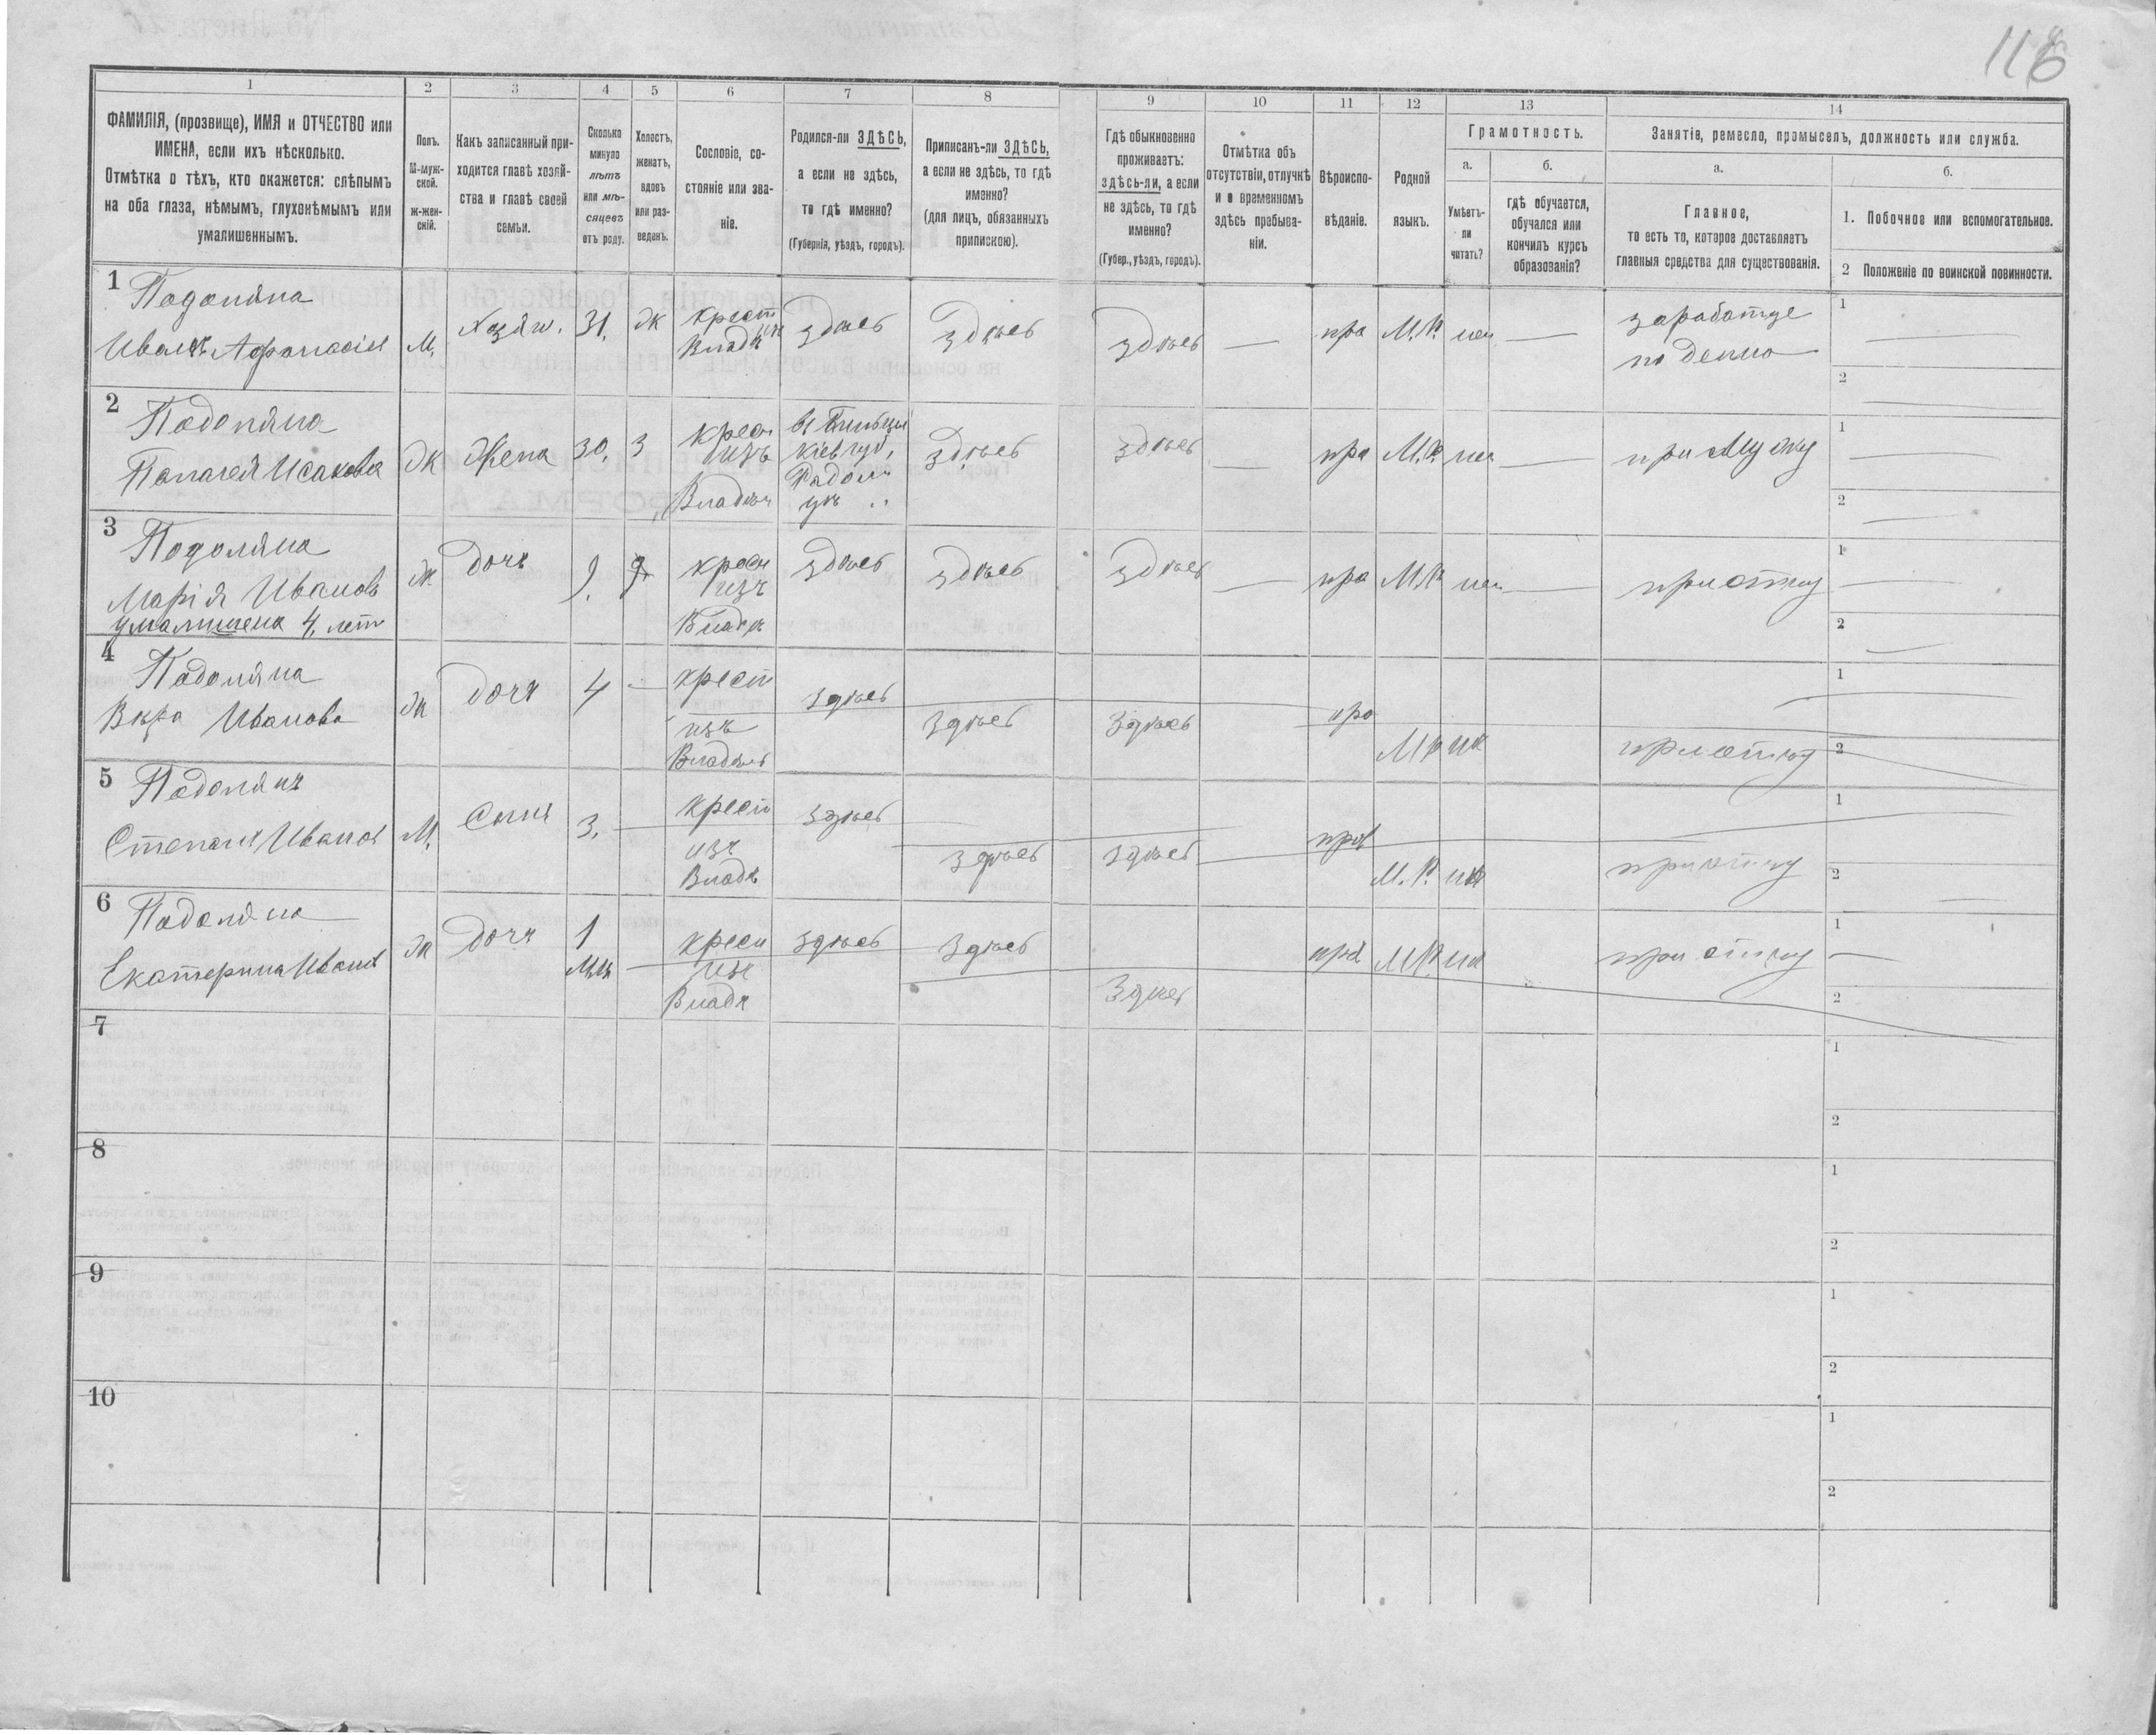 118
1 2 3 4 5 6 7 8 9 10 11 12 13 14
ФАМИЛІЯ, (прозвище), ИМЯ и ОТЧЕСТВО или
ИМЕНА, если ихъ нѣсколько.
Отмѣтка о тѣхъ, кто окажется: слѣпымъ
на оба глаза, нѣмымъ, глухонѣмымъ или
умалишеннымъ.
Полъ.
М-муж-
ской.
Ж-жен-
скій.
Какъ записанный при-
ходится главѣ хозяй-
ства и главѣ своей
семьи.
Сколько
минуло
лѣтъ
или мѣ-
сяцевъ
отъ роду.
Холостъ,
женатъ,
вдовъ
или раз-
веденъ.
Сословіе, со-
стояніе или зва-
ніе.
Родился-ли ЗДѢСЬ,
а если не здѣсь,
то гдѣ именно?
(Губернія, уѣздъ, городъ).
Приписанъ-ли ЗДѢСЬ,
а если не здѣсь, то гдѣ
именно?
(для лицъ, обязанныхъ
припискою).
Гдѣ обыкновенно
проживаетъ:
здѣсь-ли, а если
не здѣсь, то гдѣ
именно?
(Губер., уѣздъ, городъ).
Отмѣтка объ
отсутствіи, отлучкѣ
и о временномъ
здѣсь пребыва-
ніи.
Вѣроиспо-
вѣданіе.
Родной
языкъ.
Грамотность.
а.
Умѣетъ-
ли
читать?
б.
гдѣ обучается,
обучался или
кончилъ курсъ
образованія?
Занятіе, ремесло, промыселъ, должность или служба.
а.
Главное,
то есть то, которое доставляетъ
главныя средства для существованія.
б.
1. Побочное или вспомогательное.
2 Положеніе по воинской повинности.
1 Подоляна
Иванъ Афанасіев М. Хозяин. 31. Ж крест изъ Владѣ здѣсь здѣсь здѣсь — пра М.Р. нет — заработце
по денно
1 —
2 —
2 Подоляна
Палагея Исакова Ж Жена 30. З крест изъ Владѣл
Кіев губ.
Радом
уѣ
здѣсь здѣсь — пра М.Р. нет — при Мужу
1 —
2 —
3 Подоляна
Марія Иванов Ж дочь 9. крест изъ Владѣ здѣсь здѣсь здѣсь — пра М.Р нет — при отцу
умалишена 4. лет
1 —
2 —
4 Подоляна
Вѣра Иванова Ж дочь 4 — крест изъ Владѣль здѣсь здѣсь здѣсь пра М Р нѣ при отцу
1
2
5 Подолянъ
Степанъ Иванов М. Сынъ 3. — крест изъ Владѣ здѣсь здѣсь здѣсь — прав М.Р. нѣ при отцу
1
2 —
6 Подоляна
Екатерина Иванов Ж дочь 1 мѣц — крест изъ Владѣ здѣсь здѣсь здѣсь пра М.Р. нѣ при отцу
1 —
2
7
1
2
8
1
2
9
1
2
10
1
2